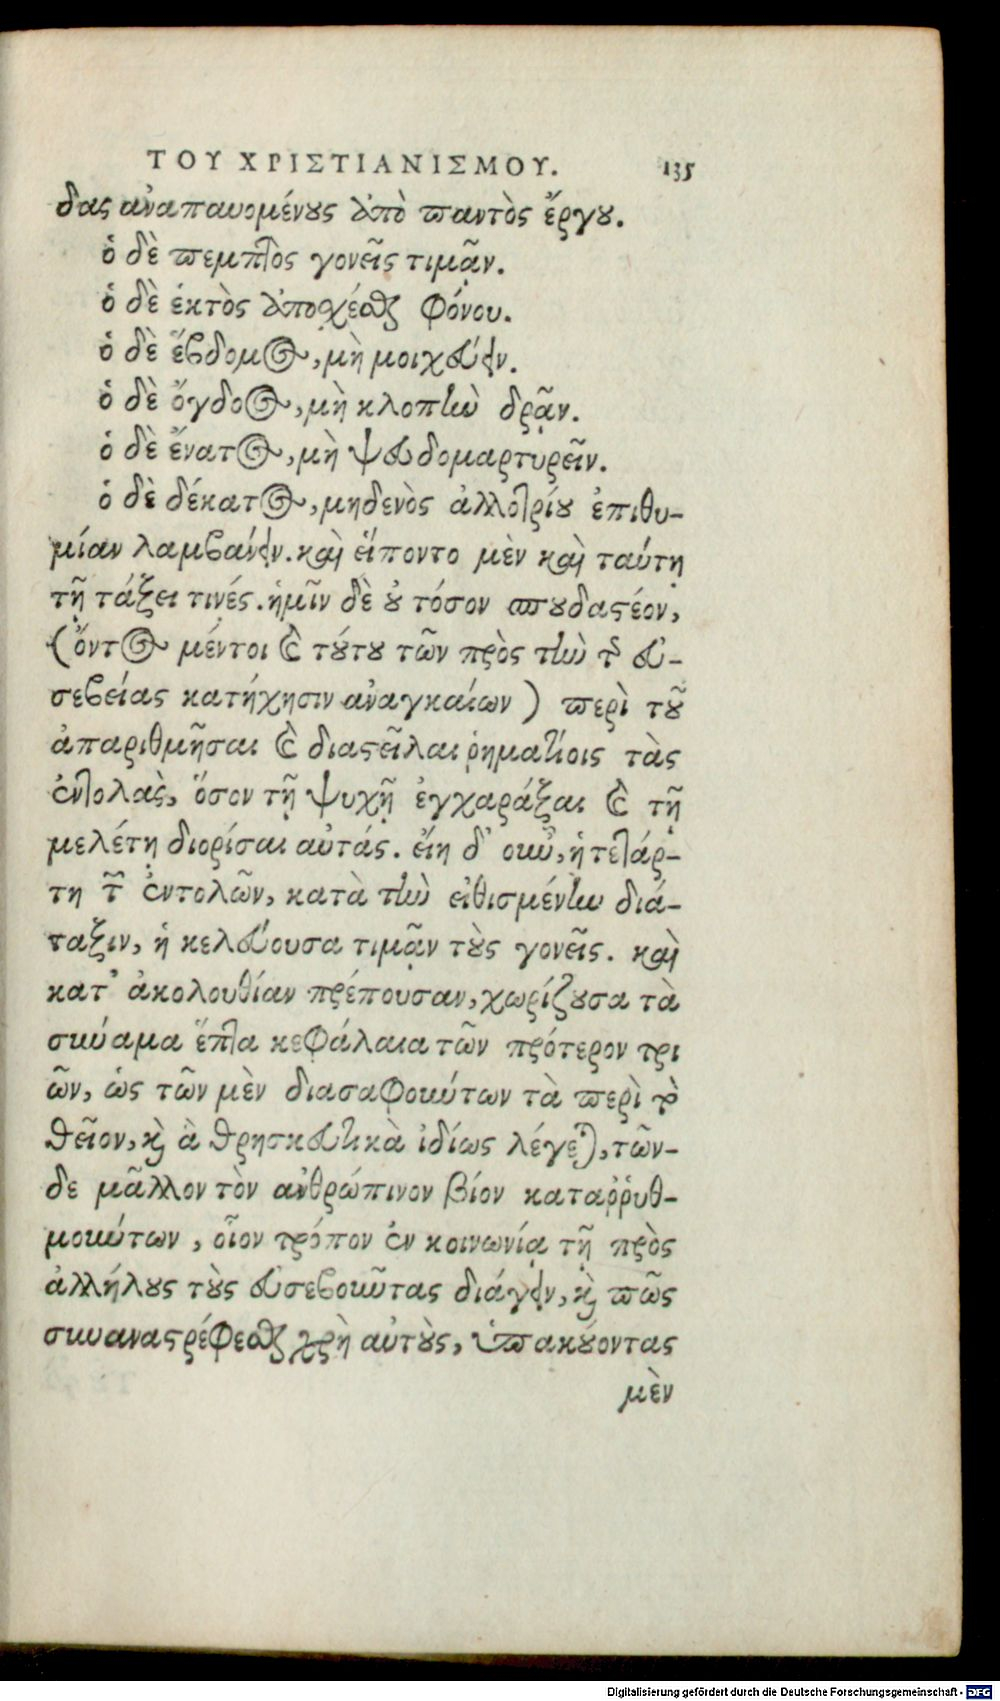 ΤΟΥ ΧΡΙΣΤΙΑΝΙΣΜΟΥ. 135
δας ἀναπαυομένους ἀπὸ παντὸς ἔργου.
ὁ δὲ πεμπτὸς γονεῖς τιμᾷν.
ὁ δὲ ἑκτὸς ἀποσχέσθαι φόνου.
ὁ δὲ ἕβδομος, μὴ μοιχεύειν.
ὁ δὲ ὄγδοος, μὴ κλοπὴν δρᾷν.
ὁ δὲ ἔνατος, μὴ ψευδομαρτυρεῖν.
ὁ δὲ δέκατος, μηδενὸς ἀλλοτρίου ἐπιθυ-
μίαν λαμβάνειν. καὶ εἵποντο μὲν καὶ ταύτῃ
τῇ τάξει τινές. ἡμῖν δὲ οὐ τόσον σπουδαστέον,
(ὄντος μέντοι καὶ τούτου τῶν πρὸς τὴν τῆς εὐ-
σεβείας κατήχησιν ἀναγκαίων) περὶ τοῦ
ἀπαριθμῆσαι καὶ διαστεῖλαι ῥηματίοις τὰς
ἐντολὰς, ὅσον τῇ ψυχῇ ἐγχαράξαι καὶ τῇ
μελέτῃ διορίσαι αὐτάς. εἴη δ' οὖν, ἡ τετάρ-
τη τῶν ἐντολῶν, κατὰ τὴν εἰθισμένην διά-
ταξιν, ἡ κελεύουσα τιμᾷν τοὺς γονεῖς. καὶ
κατ' ἀκολουθίαν πρέπουσαν, χωρίζουσα τὰ
συνάμα ἕπτα κεφάλαια τῶν πρότερον τρι
ῶν, ὡς τῶν μὲν διασαφούντων τὰ περὶ τὸ
θεῖον, καὶ ἃ θρησκευτικὰ ἰδίως λέγεται, τῶν-
δε μᾶλλον τὸν ἀνθρώπινον βίον καταῤῥυθ-
μούντων, οἷον τρόπον ἐν κοινωνίᾳ τῇ πρὸς
ἀλλήλους τοὺς εὐσεβοῦντας διάγειν, καὶ πῶς
συναναστρέφεσθαι χρὴ αὐτοὺς, ὑπακούοντας
μὲν
Digitalisierung gefördert durch die Deutsche Forschungsgemeinschaft - DFG